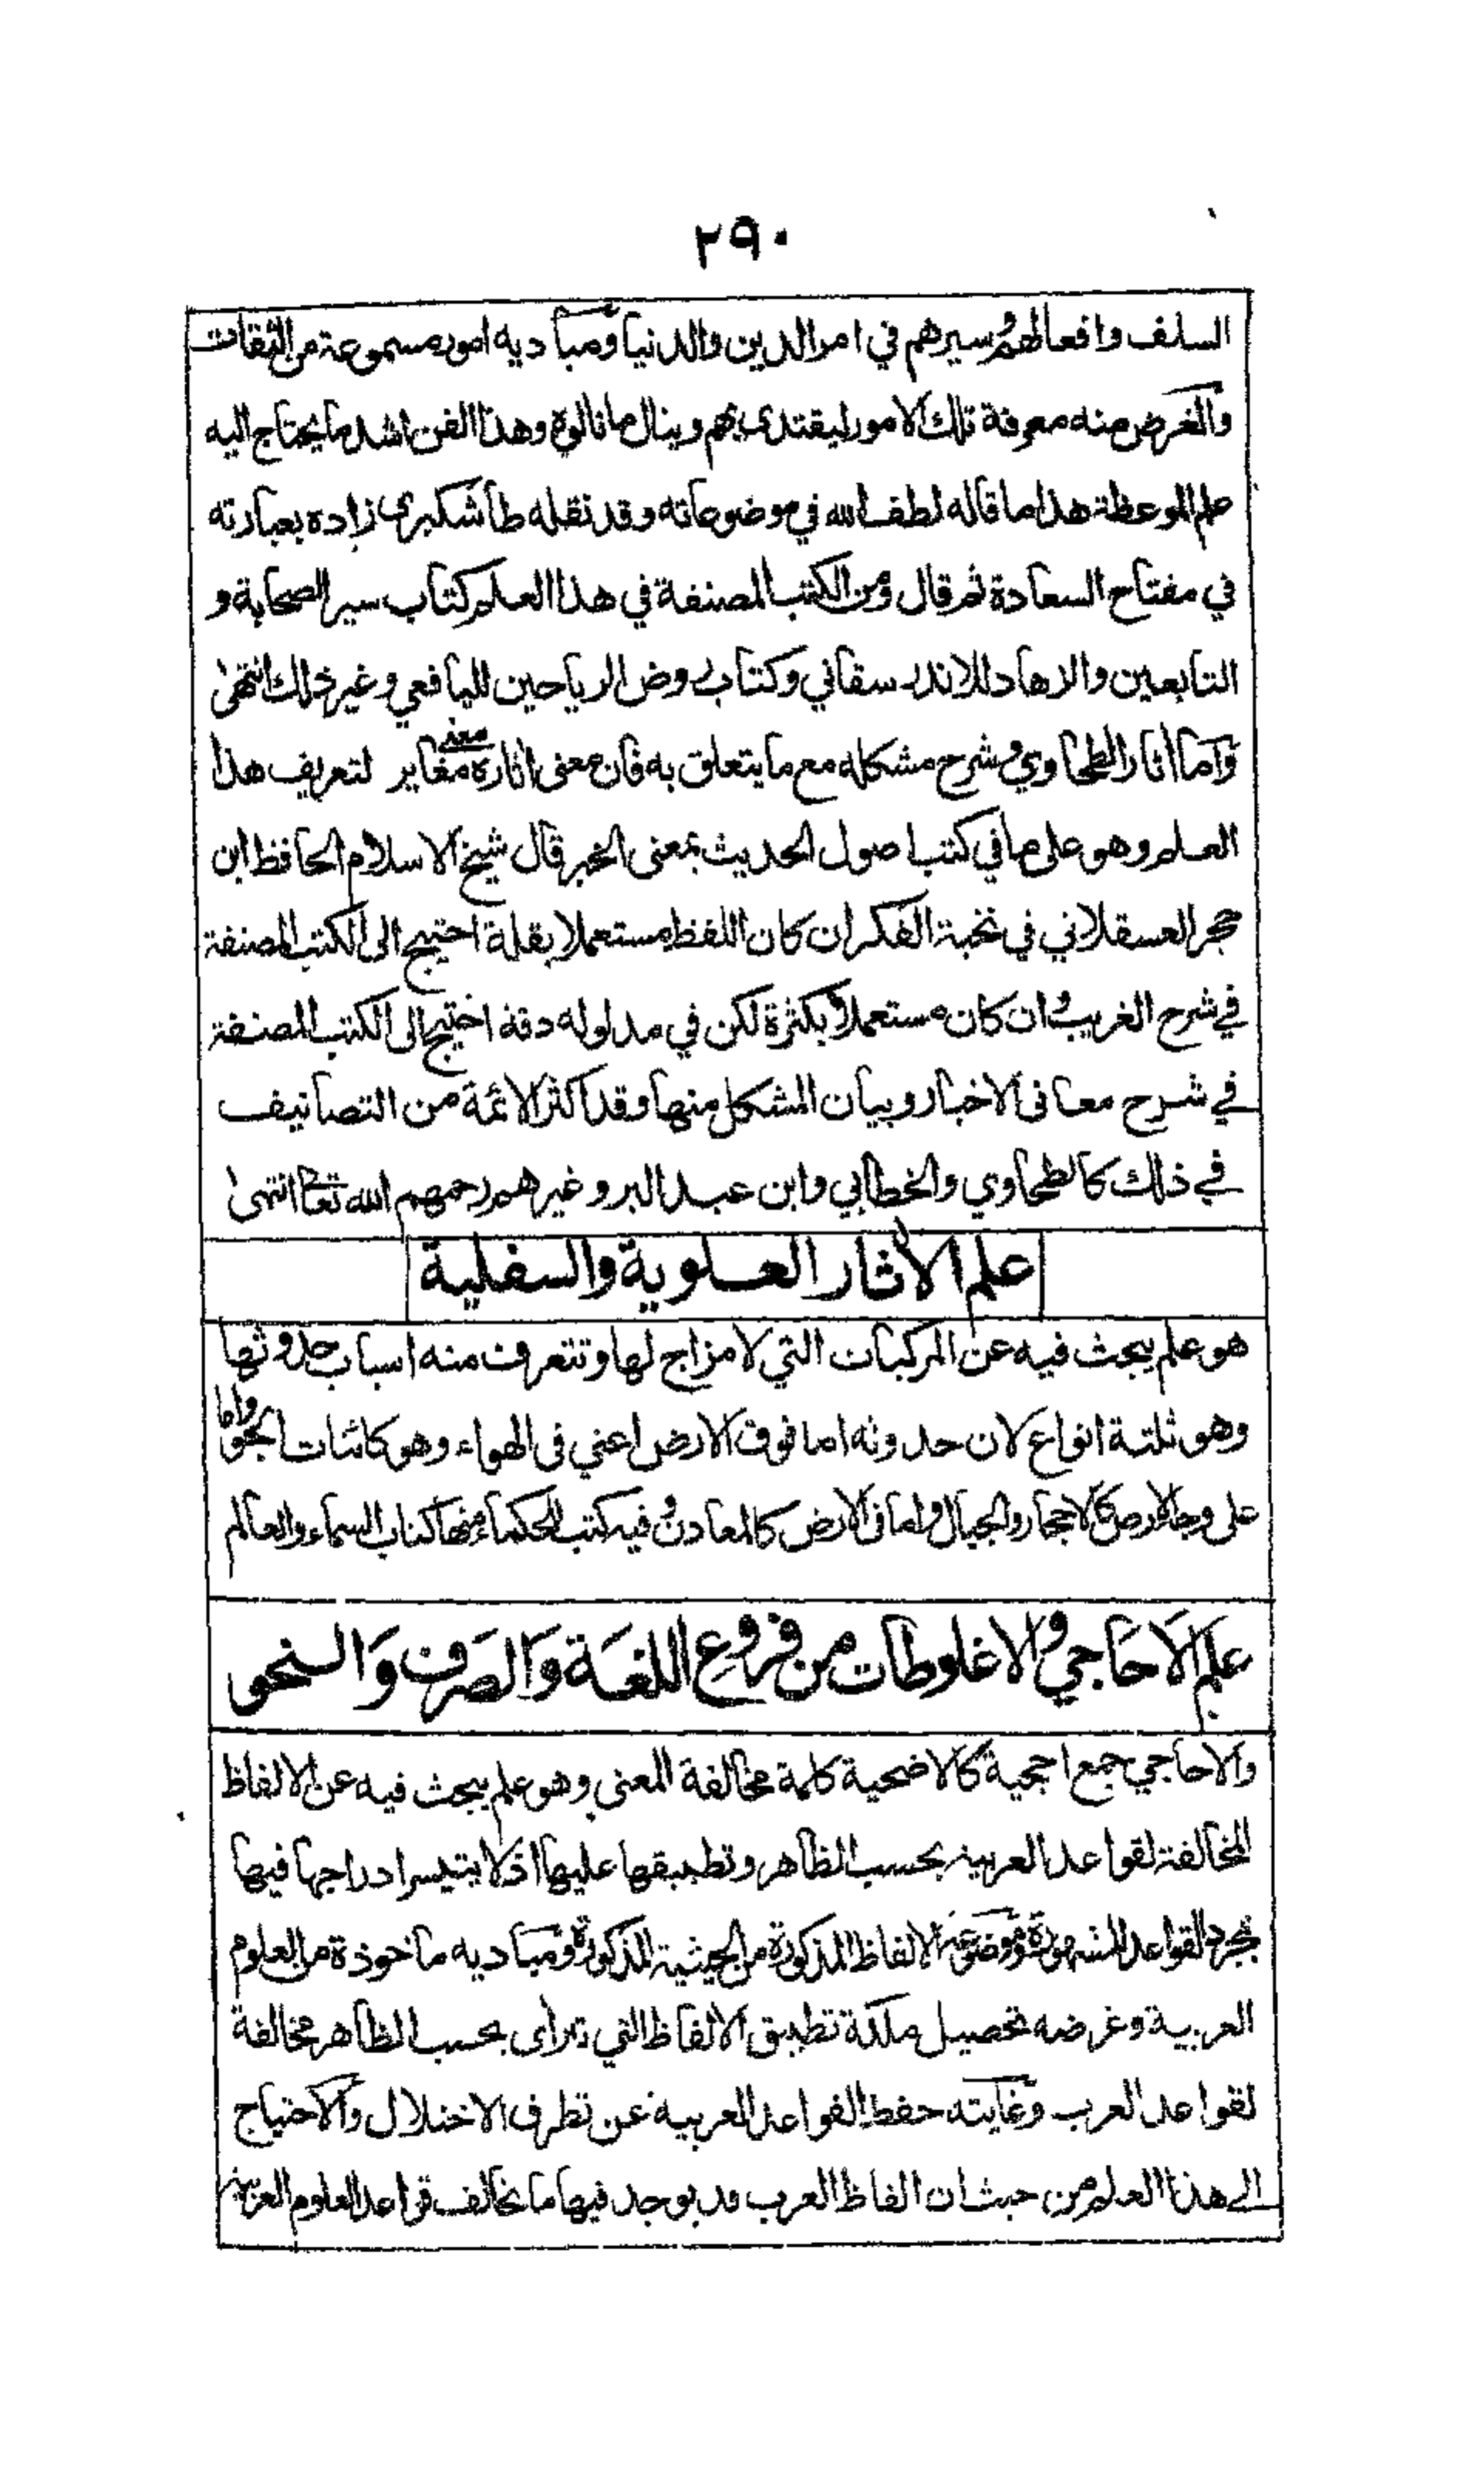 ٢٩٠
السلف وافعالهم وسيرهم في امر الدين والدنيا ومباديه امور مسموعة من الثقات
والغرض منه معرفة تلك الامور ليقتدى بهم وينال ما نالوه وهذا الفن اشد ما يحتاج اليه
علم الموعظة هذا ما قاله لطف الله في موضوعاته وقد نقله طاشكبرى زاده بعبارته
في مفتاح السعادة ثم قال ومن الكتب المصنفة في هذا العلم كتاب سير الصحابة و
التابعين والزهاد للاندرسقاني وكتاب روض الرياحين لليافعي وغير ذلك انتهى
واما اثار الطحاوي وشرح مشكله مع ما يتعلق به فان معنى اثاره معنى مغاير لتعريف هذا
العلم وهو على ما في كتب اصول الحديث بمعنى الخبر قال شيخ الاسلام الحافظ ابن
حجر العسقلاني في نخبة الفكر ان كان اللفظ مستعملا بقلة احتيج الى الكتب المصنفة
في شرح الغريب وان كان مستعملا بكثرة لكن في مدلوله دقة احتيج الى الكتب المصنفة
في شرح معانى الاخبار وبيان المشكل منها وقد اكثر الائمة من التصانيف
في ذلك كالطحاوي والخطابي وابن عبد البر وغيرهم رحمهم الله تعا انتهى
علم الأثار العلوية والسفلية
هو علم يبحث فيه عن المركبات التي لا مزاج لها وتتعرف منه اسباب حدوثها
وهو ثلثة انواع لان حدوثه اما فوق الارض اعني فى الهواء وهو كائنات الجو واما
على وجه الارض كالاحجار والجبال واما فى الارض كالمعادن وفيه كتب للحكماء منها كتاب السماء والعالم
علم الاحاجي والاغلوطات من فروع اللغة والصرف والنحو
والاحاجي جمع احجية كالاضحية كلمة مخالفة المعنى وهو علم يبحث فيه عن الالفاظ
المخالفة لقواعد العربية بحسب الظاهر وتطبيقها عليها اذ لا يتيسر ادراجها فيها
بمجرد القواعد المشهورة وموضوعه الالفاظ المذكورة من الحيثية المذكورة ومباديه ماخوذة من العلوم
العربية وغرضه تحصيل ملكة تطبيق الالفاظ التي تتراأى بحسب الظاهر مخالفة
لقواعد العرب وغايته حفظ القواعد العربية عن تطرق الاختلال والاحتياج
الى هذا العلم من حيث ان الفاظ العرب قد يوجد فيها ما يخالف قواعد العلوم العربية